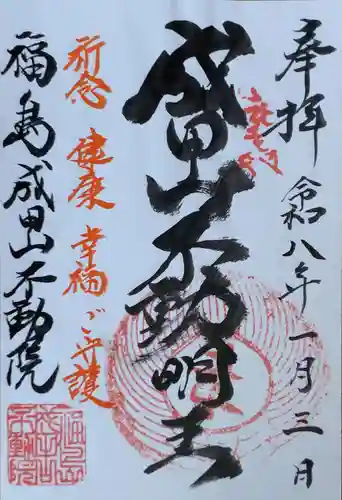 奉拝
令和八年一月三日
成田山不動明王
祈念 健康 幸福 ご守護
福島成田山不動院